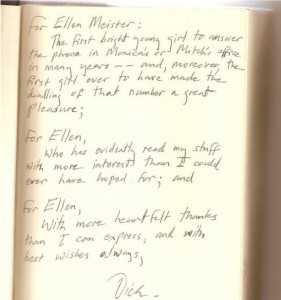 For Ellen Meister:
The first bright young girl to answer
the phone in Monica's or Mitch's office
in many years -- and, moreover, the
first girl ever to have made the
dialling of that number a great
pleasure;
For Ellen,
Who has evidently read my stuff
with more interest than I could
ever have hoped for; and
For Ellen,
With more heartfelt thanks
than I can express, and with
best wishes always,
Dick